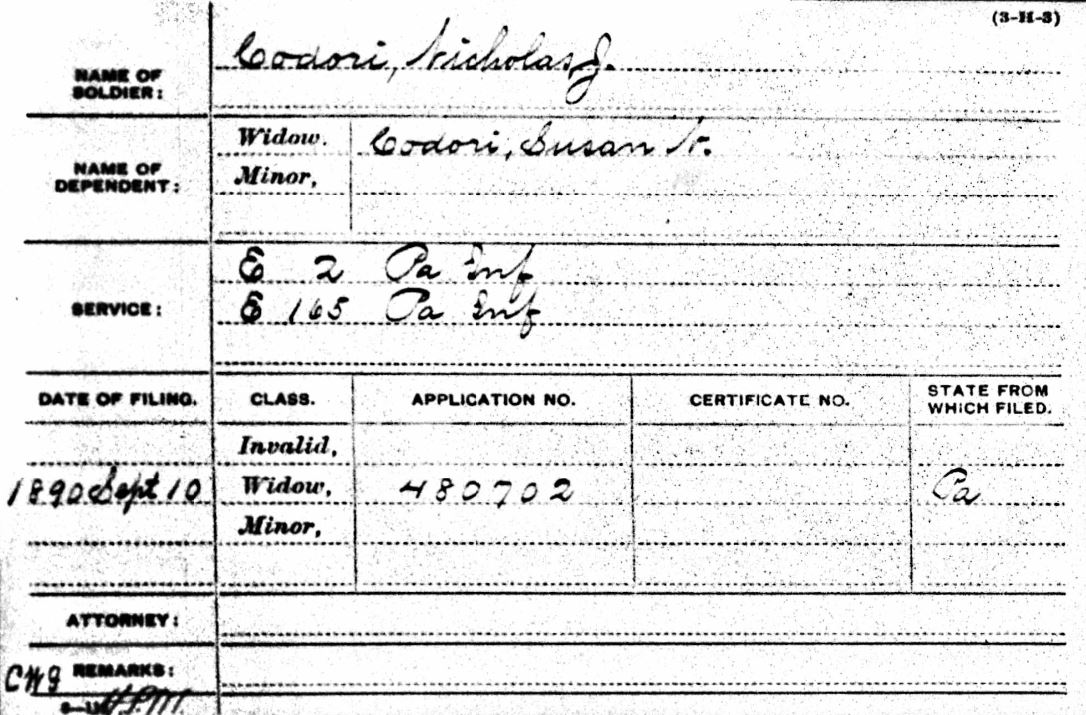 (3-H-3)
NAME OF SOLDIER: Codori, Nicholas J.
NAME OF DEPENDENT: Widow. Codori, Susan N.
Minor,
SERVICE: E 2 Pa Inf
E 165 Pa Inf
DATE OF FILING. CLASS. APPLICATION NO. CERTIFICATE NO. STATE FROM WHICH FILED.
Invalid,
1890 Sept 10 Widow, 480702 Pa
Minor,
ATTORNEY:
REMARKS: